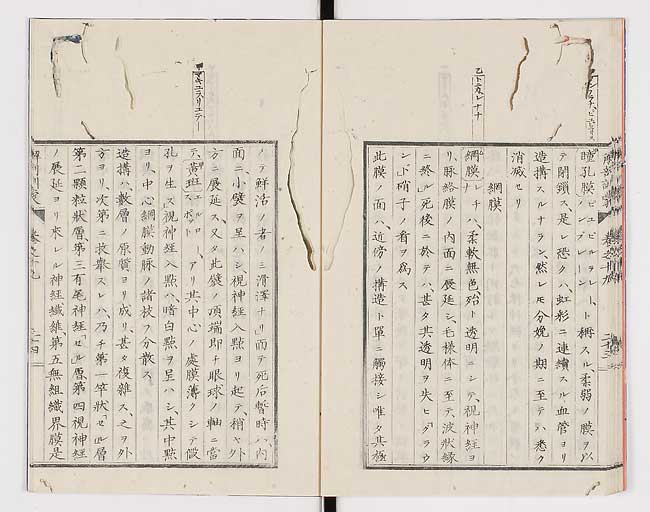 瞳孔膜「ピュピルラレート
ンブレーン」ト称スル柔弱ノ膜ヲ以
テ閉鎖ス是レ恐クハ虹彩ニ連續スル血管ヨリ
造搆スルナラン然レモ分娩ノ期ニ至テハ悉ク
消滅セリ
網膜
網膜ハ柔軟無色殆ト透明ニシテ視神経ヨ
リ脉絡膜ノ内面ニ展延シ毛様体ニ至テ波狀縁
ニ終ル死後ニ於テハ甚タ其透明ヲ失ヒ「グラウ
ンド」硝子ノ看ヲ爲ス
此膜ノ面ハ近傍ノ搆造ト單ニ觸接シ唯タ其極
ノテ鮮活ノ者ノミ滑澤ナリ而テ死后暫時ハ内
面ニ小襞ヲ呈ハシ視神経入點ヨリ起テ稍ヤ外
方ニ展延ス又タ此襞ノ頂端即チ眼球ノ軸ニ當
テ黄斑アリ其中心ノ處膜薄クシテ假
孔ヲ生ス視神経入點ハ暗白點ヲ呈ハシ其中點
ヨリ中心網膜動脉ノ諸枝ヲ分散ス
造搆ハ數層ノ原質ヨリ成リ甚タ復雜ス之ヲ外
方ヨリ次第ニ救擧スレハ乃チ第一竿狀「セル」層
第二顆粒狀層第三有尾神経「セル」層第四視神経
ノ展延ヨリ来レル神経纖維第五無組織界膜是